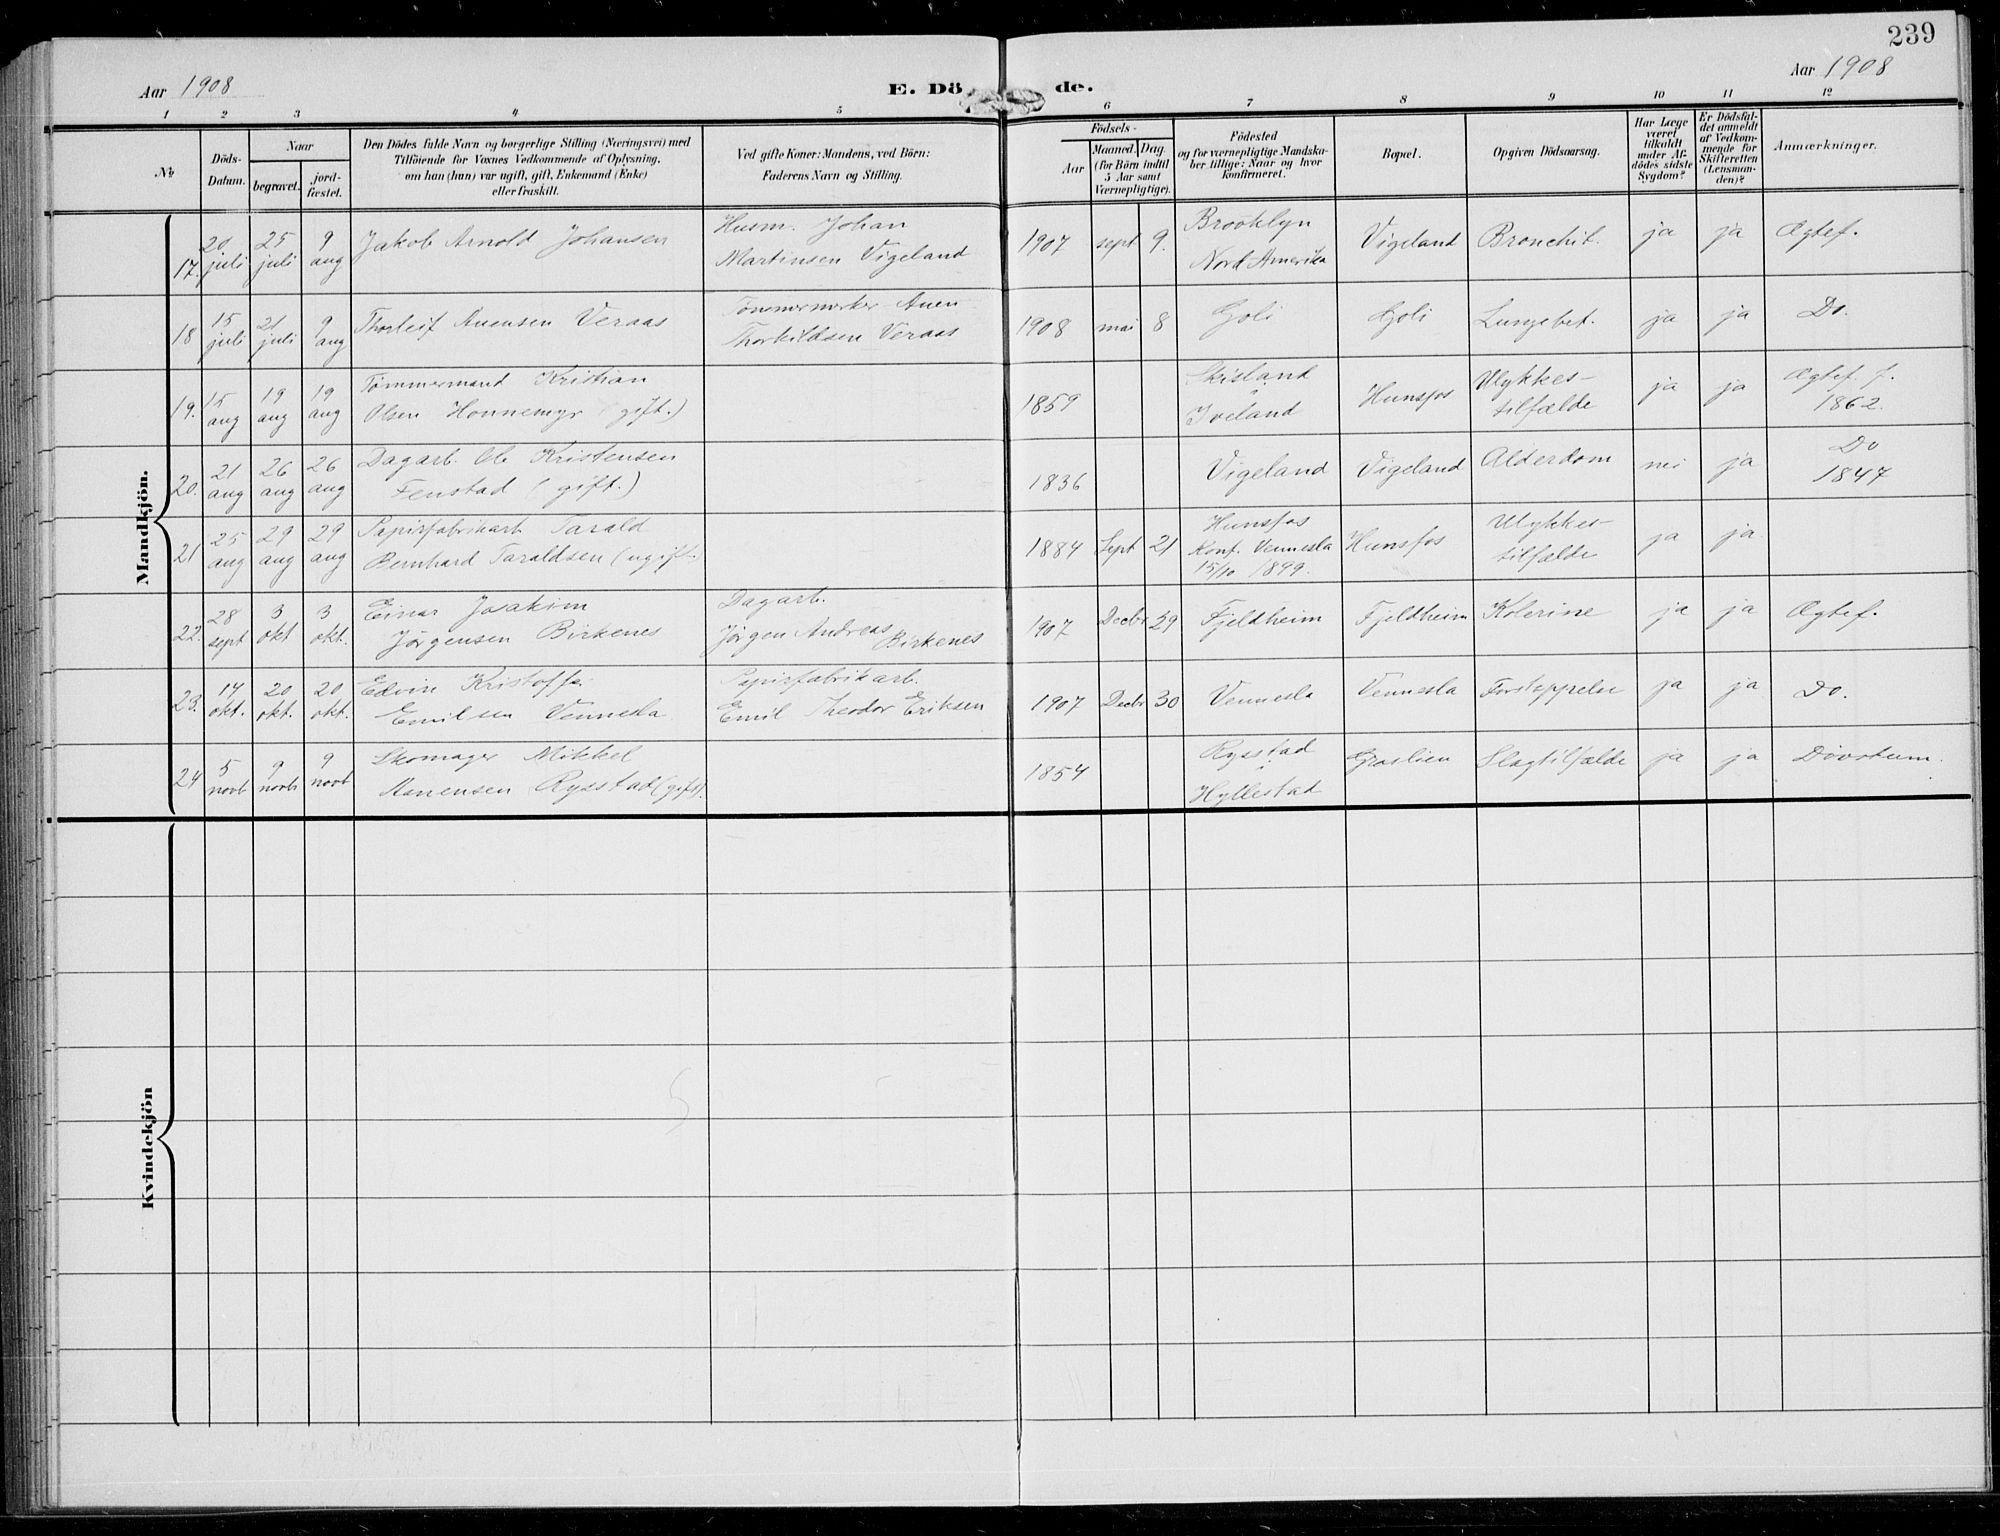 239
Aar 1908
E. Dö de.
Aar 1908
1 2 3 4 5 6 7 8 9 10 11 12
№
Döds-Datum.
Naar
begravet.
jord-fæstet.
Den Dödes fulde Navn og borgerlige Stilling (Næringsvei) med
Tilföiende for Voxnes Vedkommende af Oplysning,
om han (hun) var ugift, gift, Enkemand (Enke)
eller fraskilt.
Ved gifte Koner: Mandens, ved Börn:
Faderens Navn og Stilling.
Födsels-
Aar
Maaned. Dag.
(for Börn indtil
5 Aar samt
Værnepligtige).
Födested
og for værnepligtige Mandska-
ber tillige: Naar og hvor
konfirmeret.
Bopæl.
Opgiven Dödsaarsag.
Har Læge
været
tilkaldt
under Af-
dödes sidste
Sygdom?
Er Dödsfal-
det anmeldt
af Vedkom-
mende for
Skifteretten
(Lensman-
den)?
Anmærkninger.
Mandkjön.
17. 20 juli 25 juli 9 aug Jakob Arnold Johansen Husm. Johan Martinsen Vigeland 1907 sept 9. Brooklyn Nord Amerika Vigeland Bronchit. ja ja Ægtef.
18 15 juli 21 juli 9 aug Thorleif Anensen Veraas Anen Thorkildsen Veraas 1908 mai 8 Goli Goli Lungebet. ja ja Do.
19. 15 aug 19 aug 19 aug Tømmermand Kristian Olsen Honnemyr (gift.) 1859 Skisland Iveland Hunsfos Ulykkes-tilfælde ja ja Ægtef. f. 1862.
20. 21 aug 26 aug 26 aug Dagarb. Ole Kristensen Fenstad (gift.) 1836 Vigeland Vigeland Alderdom nei ja Do 1847
21 25 aug 29 aug 29 aug Papirfabrikarb Tarald Bernhard Taraldsen (ugift.) 1884 Sept 21 Hunsfos Konf. Vennesla 15/10 1899. Hunsfos Ulykkes-tilfælde ja ja
22. 28 sept 3 okt 3 okt. Einar Joakim Jørgensen Birkenes Dagarb. Jørgen Andreas Birkenes 1907 Decbr 29 Fjeldheim Fjeldheim Kolerine ja ja Ægtef.
23. 14 okt. 20 okt. 20 okt. Edvin Kristoffer Emilsen Vennesla Papirfabrikarb. Emil Theodor Eriksen 1907 Decbr 30 Vennesla Vennesla Forstoppelse ja ja Do.
24 5 novb 9 novb 9 novb Skomager Mikkel Aanensen Rysstad (gift). 1854 Rysstad Hyllestad Graslien Slagtilfælde ja ja Døvstum.
Kvindekjön